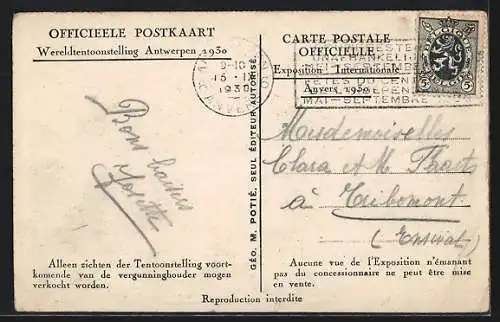 OFFICIEELE POSTKAART
Wereldtentoonstelling Antwerpen 1930
CARTE POSTALE
OFFICIELLE
Exposition Internationale
Anvers 1930
9-10
15 IX
1930
MEI-SEPTEMBER
FETES DU CENT
MAI-SEPTEMBRE
BELGIQUE
5 5
Bons baisers
Josette
GÉO. M. POTIÉ, SEUL ÉDITEUR AUTORISÉ.
Mademoiselles
Clara et M.
à Tribomont
(Ensival)
Alleen zichten der Tentoonstelling voort-
komende van de vergunninghouder mogen
verkocht worden.
Aucune vue de l'Exposition n'émanant
pas du concessionnaire ne peut être mise
en vente.
Reproduction interdite